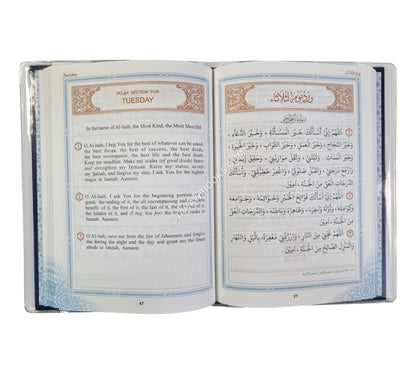 DO-AA SECTION FOR
TUESDAY
In the name of Al-laah, the Most Kind, the Most Merciful
O Al-laah, I beg You for the best of whatever can be asked,
the best do-aa, the best of success, the best deeds,
the best recompense, the best life and the best death.
Keep me steadfast. Make my scales (of good deeds) heavy
and strengthen my Imaan, raise my status, accept
my Salaah, and forgive my sins. I ask You for the highest
stages in Jannah, Aameen.
O Al-laah, I ask You for the beginning portion of
good, the ending of it, the all encompassing and complete
benefit of it, the first of it, the last of it, the open of it,
the hidden of it, and (I beg You for) the highest ranks in
Jannah, Aameen.
O Al-laah, save me from the fire of Jahannam and forgive
me during the night and the day and grant me the finest
abode in Jannah, Aameen.
47
ورد يوم الثلاثاء
اللَّهُمَّ إِنِّي أَسْأَلُكَ خَيْرَ الْمَسْأَلَةِ وَخَيْرَ الدُّعَاءِ
وَخَيْرَ النَّجَاحِ وَخَيْرَ الْعَمَلِ وَخَيْرَ الثَّوَابِ وَخَيْرَ الْحَيَاةِ
وَخَيْرَ الْمَمَاتِ وَثَبِّتْنِي وَثَقِّلْ مَوَازِينِي وَحَقِّقْ إِيمَانِي
وَارْفَعْ دَرَجَتِي وَتَقَبَّلْ صَلَاتِي وَاغْفِرْ خَطِيئَتِي وَأَسْأَلُكَ
الدَّرَجَاتِ الْعُلَى مِنَ الْجَنَّةِ آمِينَ
اللَّهُمَّ إِنِّي أَسْأَلُكَ فَوَاتِحَ الْخَيْرِ وَخَوَاتِمَهُ وَجَوَامِعَهُ
وَأَوَّلَهُ وَآخِرَهُ وَظَاهِرَهُ وَبَاطِنَهُ وَالدَّرَجَاتِ الْعُلَى
مِنَ الْجَنَّةِ آمِينَ
اللَّهُمَّ نَجِّنِي مِنَ النَّارِ وَارْزُقْنِي مَغْفِرَةً بِاللَّيْلِ وَالنَّهَارِ
وَالْمَنْزِلَ الصَّالِحَ مِنَ الْجَنَّةِ آمِينَ